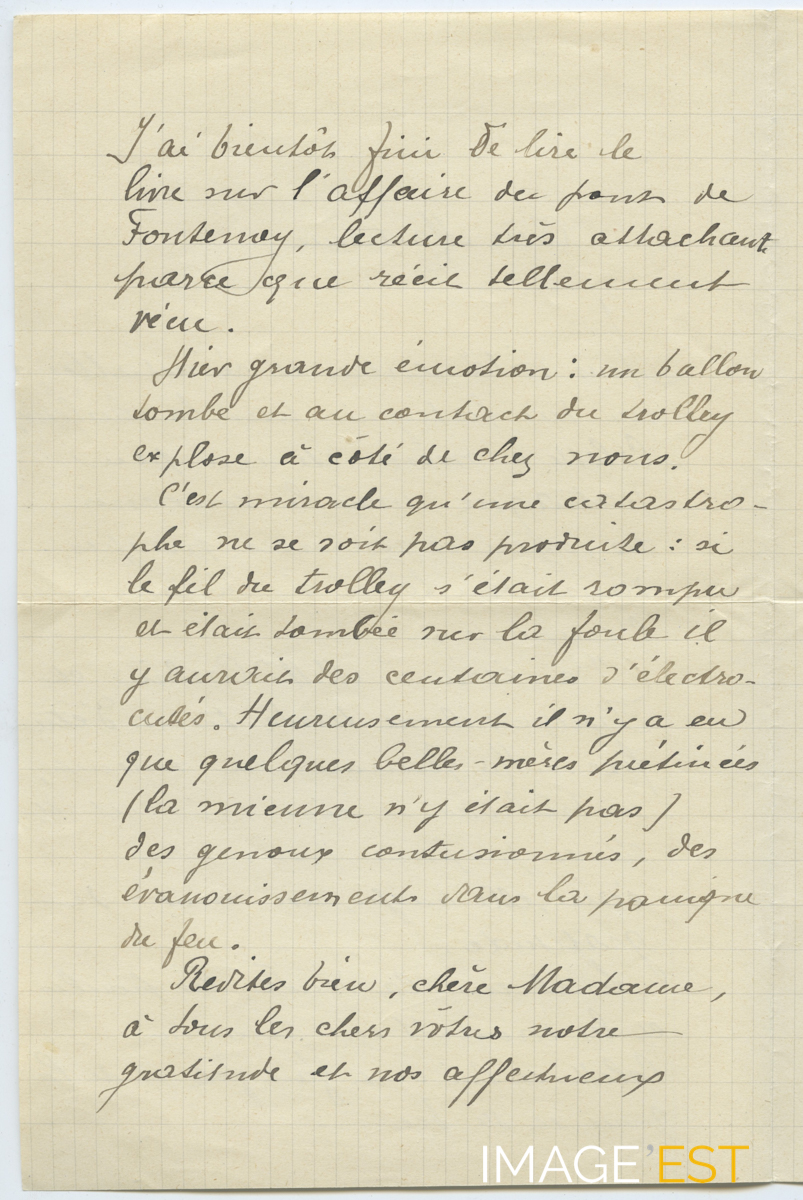 J'ai bientôt fini de lire le
livre sur l'affaire du pont de
Fontenoy, lecture très attachante
parce que récit tellement
vécu.
Hier grande émotion : un ballon
tombe et au contact du trolley
explose à côté de chez nous.
C'est miracle qu'une catastro-
phe ne se soit pas produite : si
le fil du trolley s'était rompu
et était tombée sur la foule il
y aurait des centaines d'électro-
cutés. Heureusement il n'y a eu
que quelques belles-mères piétinées
(la mienne n'y était pas)
des genoux contusionnés, des
évanouissements dans la panique
du feu.
Redites bien, chère Madame,
à tous les chers vôtres notre
gratitude et nos affectueux
IMAGE'EST